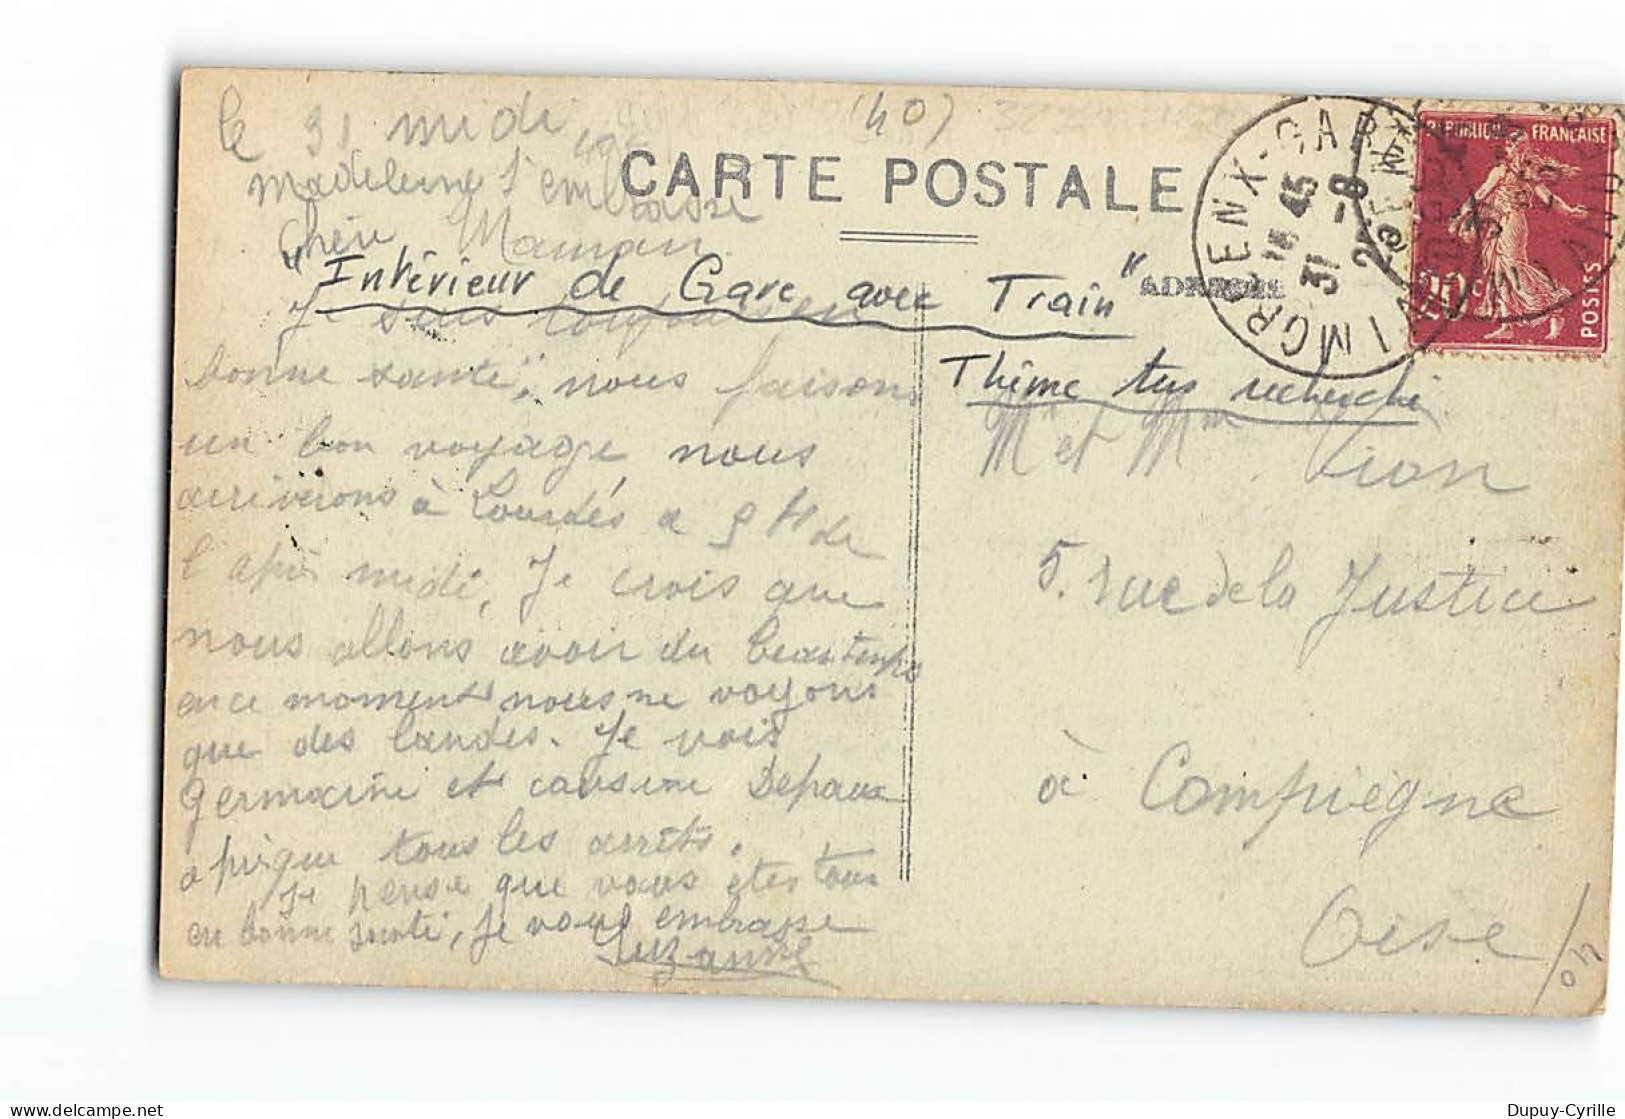 le 31 midi (40)
Madeleine t'embrasse
CARTE POSTALE
Chère Maman
"Intérieur de Gare avec Train"
ADRESSE
Je suis toujours en
bonne santé, nous faisons
un bon voyage nous
arriverons à Lourdes a 5 H de
l'après midi, Je crois que
nous allons avoir du beau temps
en ce moment nous ne voyons
que des landes. Je vois
Germaine et cousine Depaux
a presque tous les arrêts.
Je pense que vous êtes tous
en bonne santé, Je vous embrasse
Suzanne
MORCENX-GARE
15 45
31 -8
25
REPUBLIQUE FRANÇAISE
20c
POSTES
Thème très recherché
Mr et Mme Vion
5. rue de la Justice
à Compiègne
Oise
40
Dupuy-Cyrille